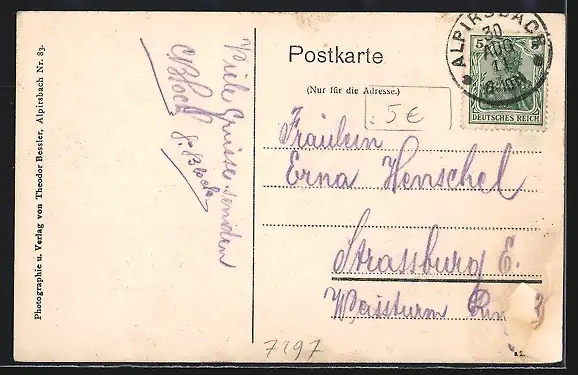 Photographie u. Verlag von Theodor Bessler, Alpirsbach Nr. 83.
Viele Grüsse senden
Postkarte
(Nur für die Adresse.)
ALPIRSBACH
30
AUG
11
5
5
DEUTSCHES REICH
.5€
Fräulein
Erna Henschel
Strassburg E.
Weissturm
7297